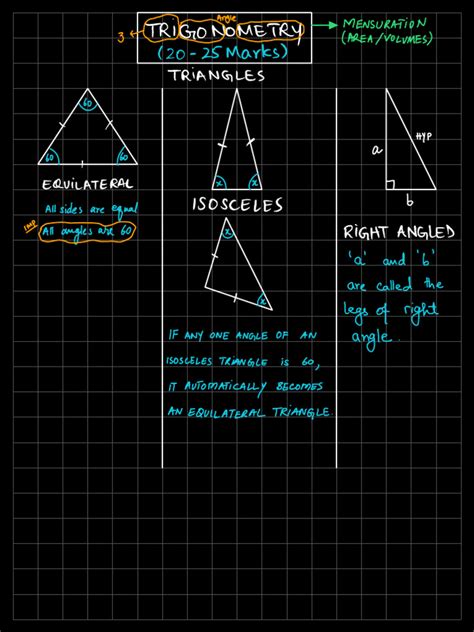 Angle
3 ← TRIGONOMETRY → MENSURATION
(AREA/VOLUMES)
(20 - 25 Marks)
TRIANGLES
60
60
60
EQUILATERAL
All sides are equal
imp
All angles are 60
x
x
ISOSCELES
x
x
IF ANY ONE ANGLE OF AN
ISOSCELES TRIANGLE IS 60,
IT AUTOMATICALLY BECOMES
AN EQUILATERAL TRIANGLE.
a
HYP
b
RIGHT ANGLED
'a' and 'b'
are called the
legs of right
angle.